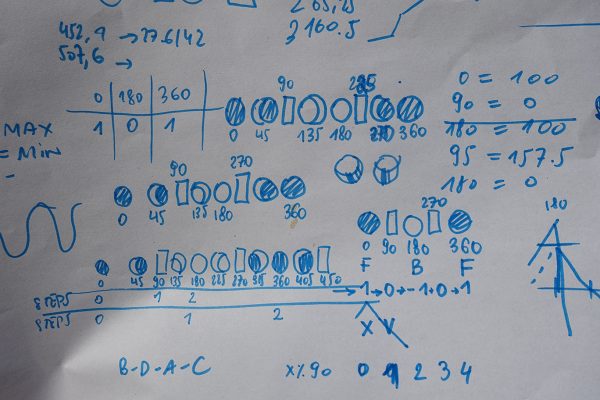 452,9 → 27.6/42
507,6 →
3160.5
0 180 360
1 0 1
MAX
= MIN
90
0 45 135 180 360
0 = 100
90 = 0
180 = 100
95 = 157.5
180 = 0
90 270
0 45 135 180 360
270
0 90 180 360
F B F
180
0 45 90 135 180 225 270 360 405 450
STEPS 0 1 2
STEPS 0 1 2
→ 1 → 0 → -1 → 0 → 1
X V
B-D-A-C
X % 90 0 1 2 3 4